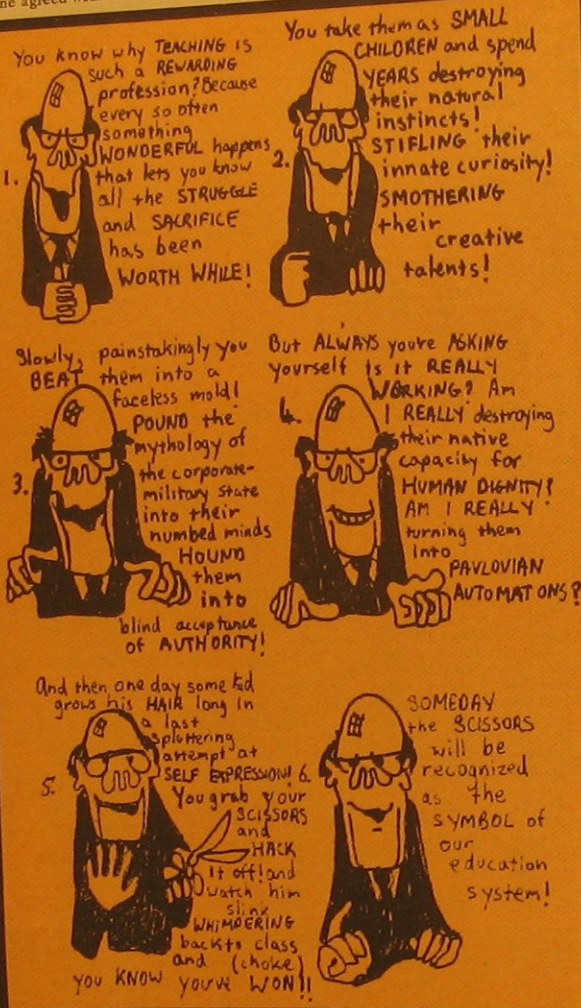 1.
You know why TEACHING is
such a REWARDING
profession? Because
every so often
something
WONDERFUL happens
that lets you know
all the STRUGGLE
and SACRIFICE
has been
WORTH WHILE!
2.
You take them as SMALL
CHILDREN and spend
YEARS destroying
their natural
instincts!
STIFLING their
innate curiosity!
SMOTHERING
their
creative
talents!
3.
Slowly, painstakingly you
BEAT them into a
faceless mold!
POUND the
mythology of
the corporate-
military state
into their
numbed minds
HOUND
them
into
blind acceptance
of AUTHORITY!
4.
But ALWAYS you're ASKING
yourself Is it REALLY
WORKING? Am
I REALLY destroying
their native
capacity for
HUMAN DIGNITY?
AM I REALLY
turning them
into
PAVLOVIAN
AUTOMATIONS?
5.
And then one day some kid
grows his HAIR long in
a last
spluttering
attempt at
SELF EXPRESSION!
You grab your
SCISSORS
and
HACK
It off! and
watch him
slink
WHIMPERING
back to class
and (choke)
YOU KNOW YOU'VE WON!!
6.
SOMEDAY
the SCISSORS
will be
recognized
as the
SYMBOL of
our
education
system!